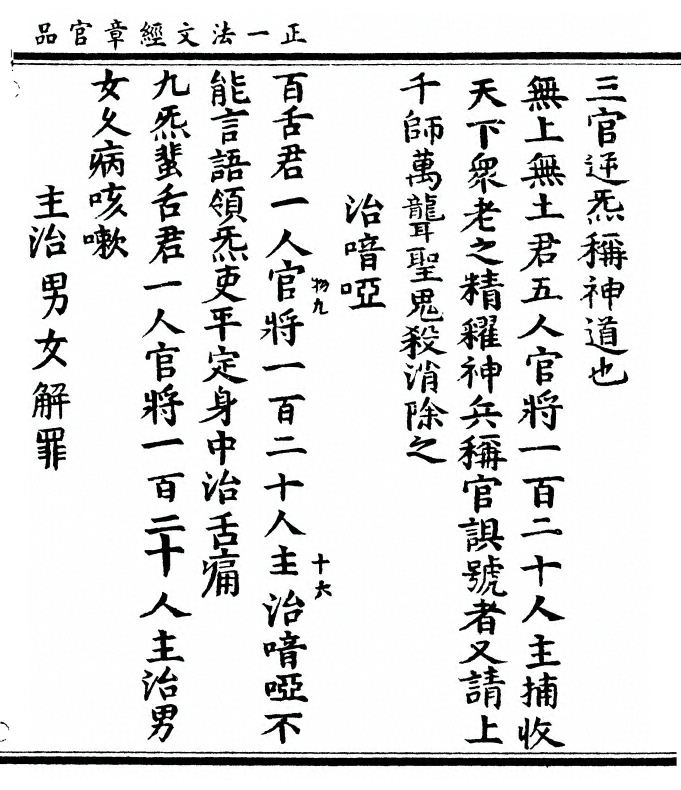 正一法文經章官品
三官逆炁稱神道也
無上無土君五人官將一百二十人主捕收
天下眾老之精耀神兵稱官誤號者又請上
千師萬聾聖鬼殺消除之
治喑啞
百舌君一人官將一百二十人主治喑啞不
物九
十六
能言語領炁吏平定身中治舌痛
九炁蜚舌君一人官將一百二十人主治男
女久病咳嗽
主治男女解罪